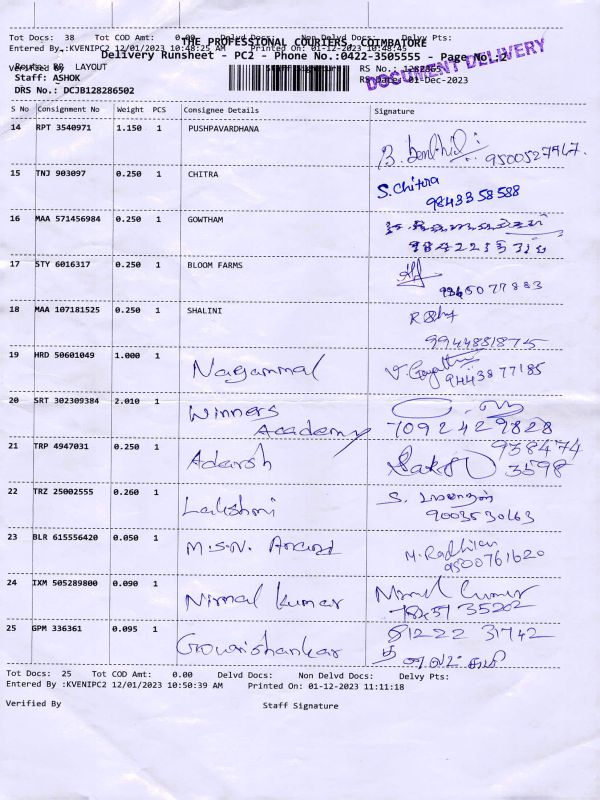 Tot Docs: 38 Tot COD Amt: 0.00 Delvd Docs: Non Delvd Docs: Delvy Pts:
THE PROFESSIONAL COURIERS, COIMBATORE
Entered By :KVENIPC2 12/01/2023 10:48:25 AM Printed On: 01-12-2023 10:48:45
Delivery Runsheet - PC2 - Phone No.:0422-3505555 - Page No.:2
DOCUMENT DELIVERY
Verified By Staff Signature
LAYOUT RS No.:
Staff: ASHOK RS Date: 01-Dec-2023
DRS No.: DCJB128286502
S No Consignment No Weight PCS Consignee Details Signature
14 RPT 3540971 1.150 1 PUSHPAVARDHANA
9500527967.
15 TNJ 903097 0.250 1 CHITRA S. Chitra
9843358588
16 MAA 571456984 0.250 1 GOWTHAM
17 STY 6016317 0.250 1 BLOOM FARMS
9865077883
18 MAA 107181525 0.250 1 SHALINI
9944881875
19 HRD 50601049 1.000 1 Nagammal V. Gayathri
9443877185
20 SRT 302309384 2.010 1 Winners
Academy 7092429828
21 TRP 4947031 0.250 1 Adarsh 938474
3598
22 TRZ 25002555 0.260 1 Lakshmi S.
9003530163
23 BLR 615556420 0.050 1 M.S.N. Anand
9500761620
24 IXM 505289800 0.090 1 Nirmal kumar
35202
25 GPM 336361 0.095 1 Gowrishankar 81222 31742
Tot Docs: 25 Tot COD Amt: 0.00 Delvd Docs: Non Delvd Docs: Delvy Pts:
Entered By :KVENIPC2 12/01/2023 10:50:39 AM Printed On: 01-12-2023 11:11:18
Verified By Staff Signature